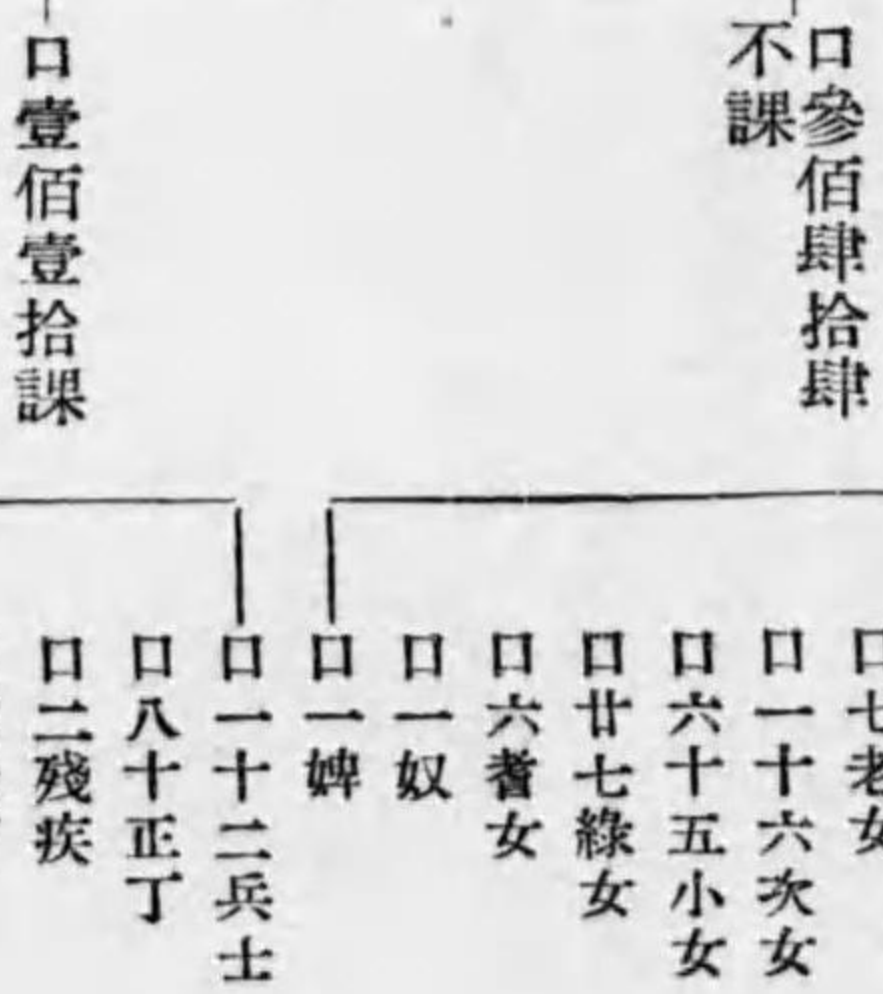 口參佰肆拾肆
不課
口壹佰壹拾課
口七老女
口一十六次女
口六十五小女
口廿七綠女
口六耆女
口一奴
口一婢
口一十二兵士
口八十正丁
口二殘疾